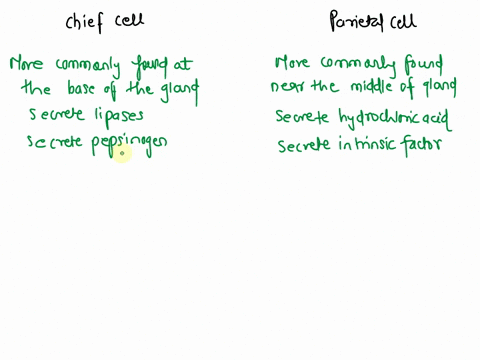 chief cell
Parietal cell
More commonly found at
the base of the gland
secrete lipases
secrete pepsinogen
More commonly found
near the middle of gland
Secrete hydrochloric acid
Secrete intrinsic factor